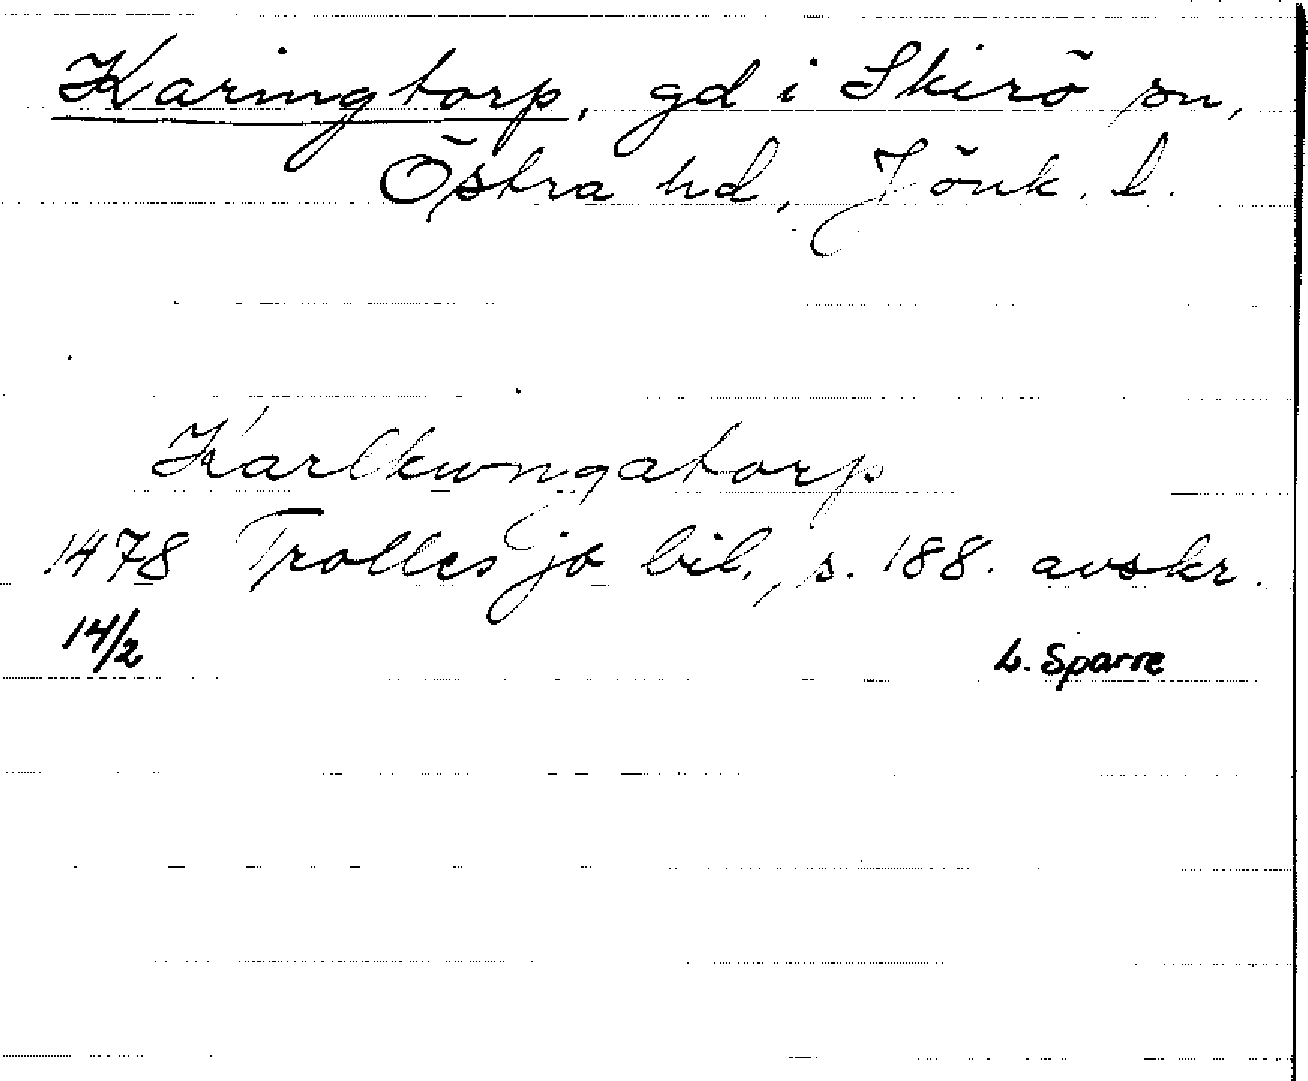 Karingtorp, gd i Skirö sn,
Östra hd, Jönk. l.
Karlkungatorp
1478 Trolles jb bil., s. 188. avskr.
14/2 L. Sparre